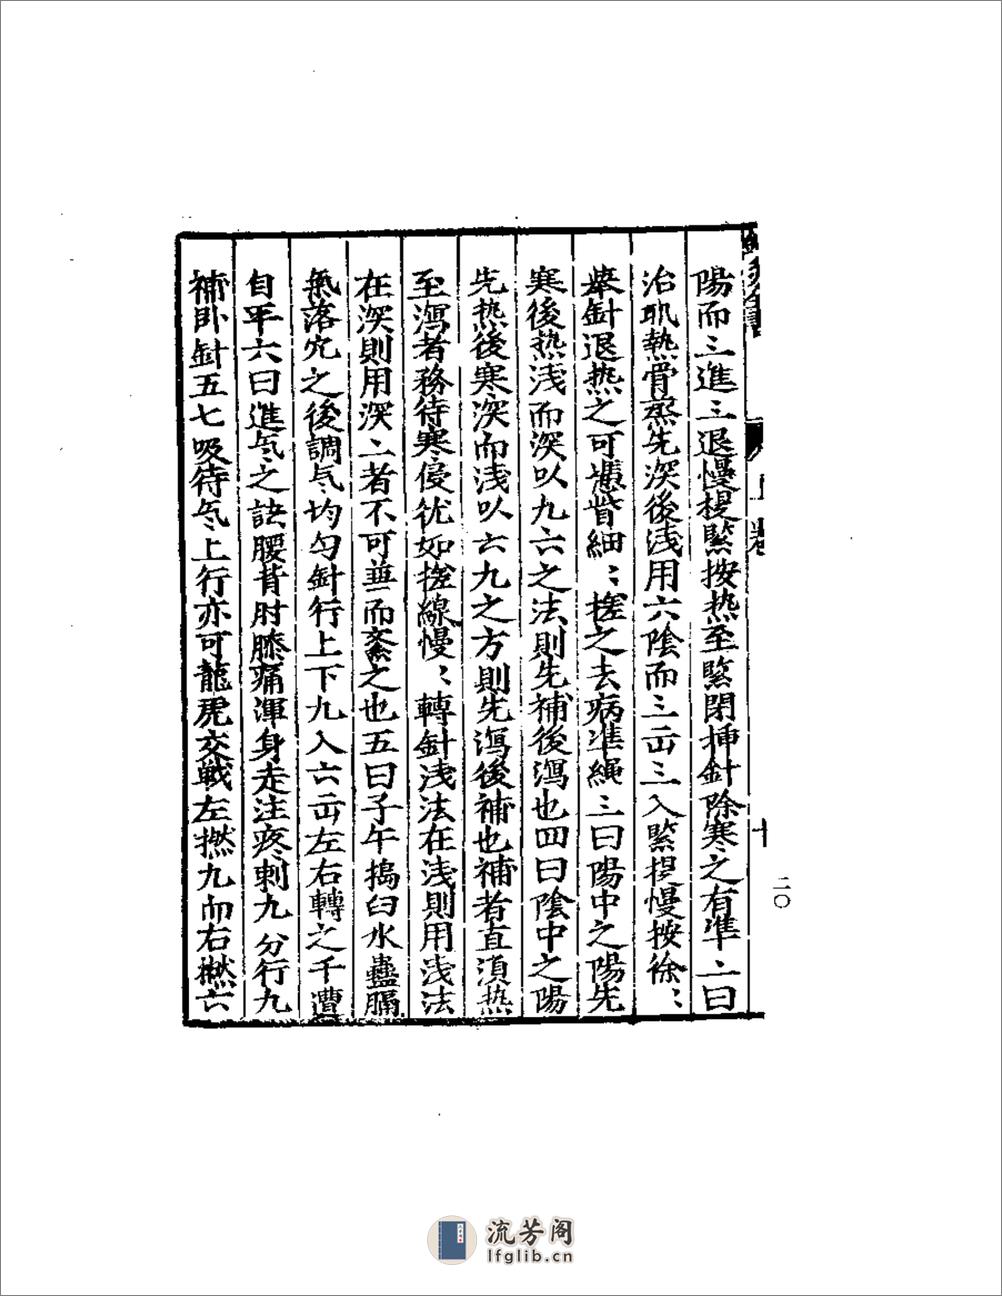 陽而三進三退慢提緊按热至緊閉揷針除寒之有準二曰
治肌熱骨蒸先深後浅用六陰而三出三入緊提慢按徐〻
舉針退热之可憑皆細〻搓之去病準繩三曰陽中之陽先
寒後热浅而深以九六之法則先補後瀉也四曰陰中之陽
先热後寒深而浅以六九之方則先瀉後補也補者直須热
至瀉者務待寒侵犹如搓線慢〻轉針浅法在浅則用浅法
在深則用深二者不可兼而紊之也五曰子午搗臼水蠱膈
氣落穴之後調气均匀針行上下九入六出左右轉之千遭
自平六曰進气之訣腰背肘膝痛渾身走注疼刺九分行九
補卧針五七吸待气上行亦可龍虎交戦左撚九而右撚六
卷
十
二〇
流芳阁
lfglib.cn